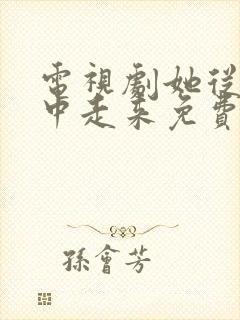 電視劇她從
中走來免費
孫會芳